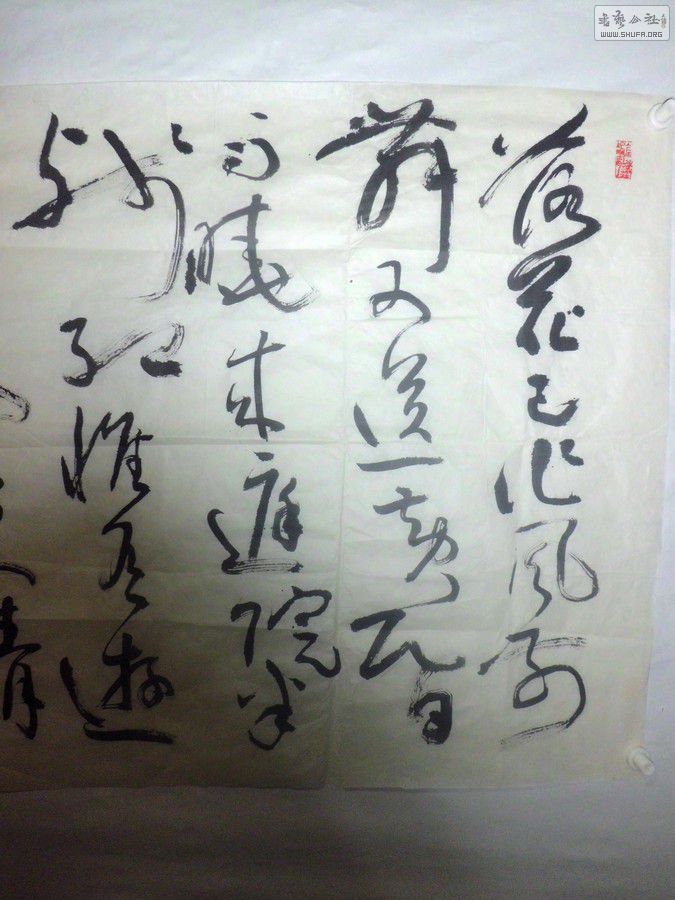 書藝公社
WWW.SHUFA.ORG
落花已作風前
舞又送黄昏
雨曉来庭院半
残红惟有遊